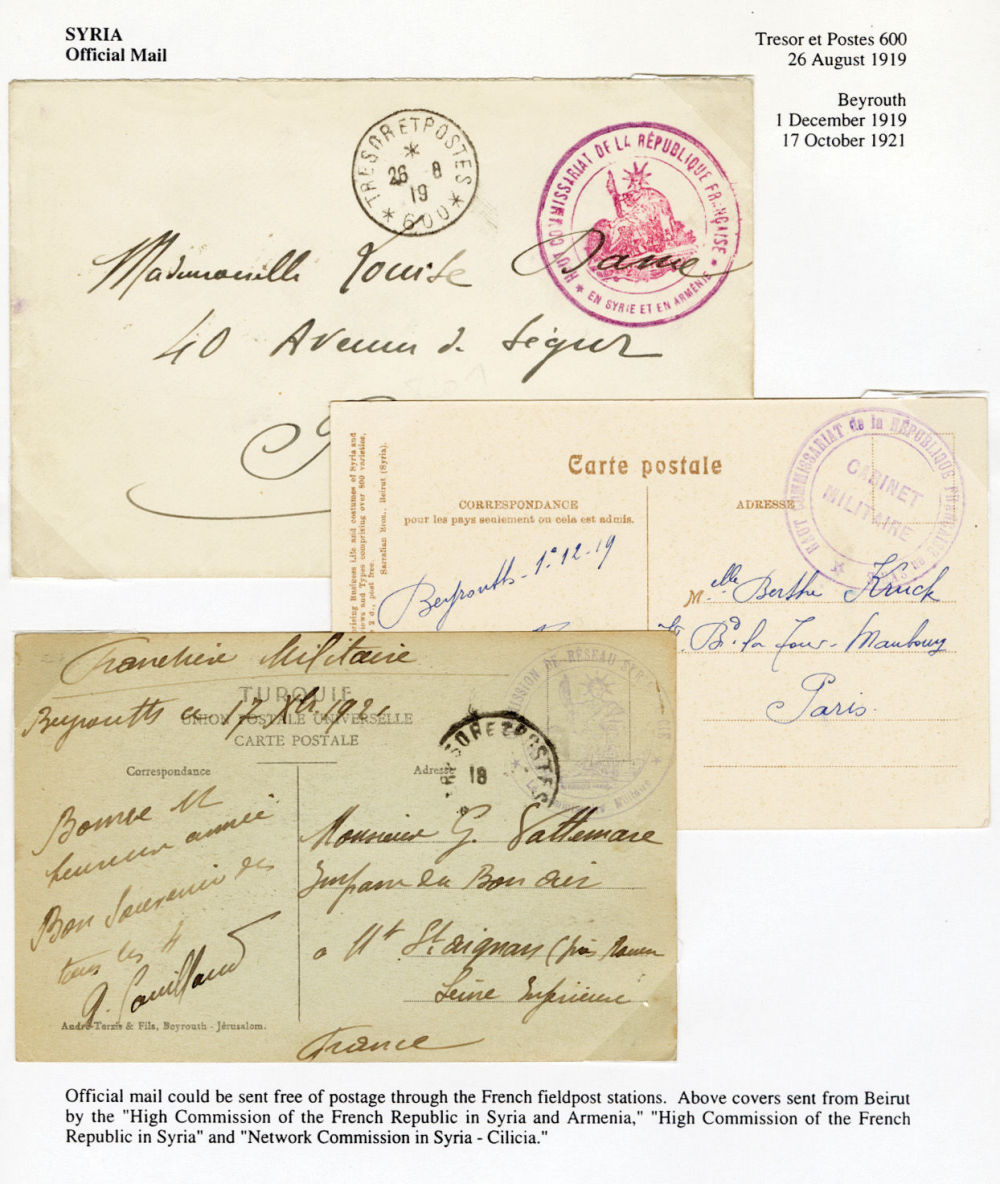 SYRIA
Official Mail
Tresor et Postes 600
26 August 1919
Beyrouth
1 December 1919
17 October 1921
TRESOR ET POSTES
*
26 8
19
* 600 *
HAUT COMMISSARIAT DE LA RÉPUBLIQUE FRANÇAISE
* EN SYRIE ET EN ARMÉNIE *
Mademoiselle Louise
40 Avenue de Ségur
Carte postale
CORRESPONDANCE
pour les pays seulement ou cela est admis.
ADRESSE
rising Business Life and costumes of Syria and
iews and Types comprising over 800 varieties,
2 d., post free.
Sarrafian Bros., Beirut (Syria).
HAUT COMMISSARIAT de la RÉPUBLIQUE FRANÇAISE
CABINET
MILITAIRE
Beyrouth 1.12.19
Melle Berthe Kruck
Bd. la Tour-Maubourg
Paris.
Franchise Militaire
TURQUIE
Beyrouth ce 17 Xbre 1921
UNION POSTALE UNIVERSELLE
CARTE POSTALE
MISSION DE RÉSEAU SYRIE
TRESOR ET POSTES
18
Correspondance
Adresse
Bonne et
heureuse année
Bon Souvenir de
tous les 4
Monsieur G. Vattemare
Impasse du Bon air
à Mt St aignan (près Rouen
Seine Inférieure
France
André Terzis & Fils, Beyrouth - Jérusalem.
Official mail could be sent free of postage through the French fieldpost stations. Above covers sent from Beirut
by the "High Commission of the French Republic in Syria and Armenia," "High Commission of the French
Republic in Syria" and "Network Commission in Syria - Cilicia."